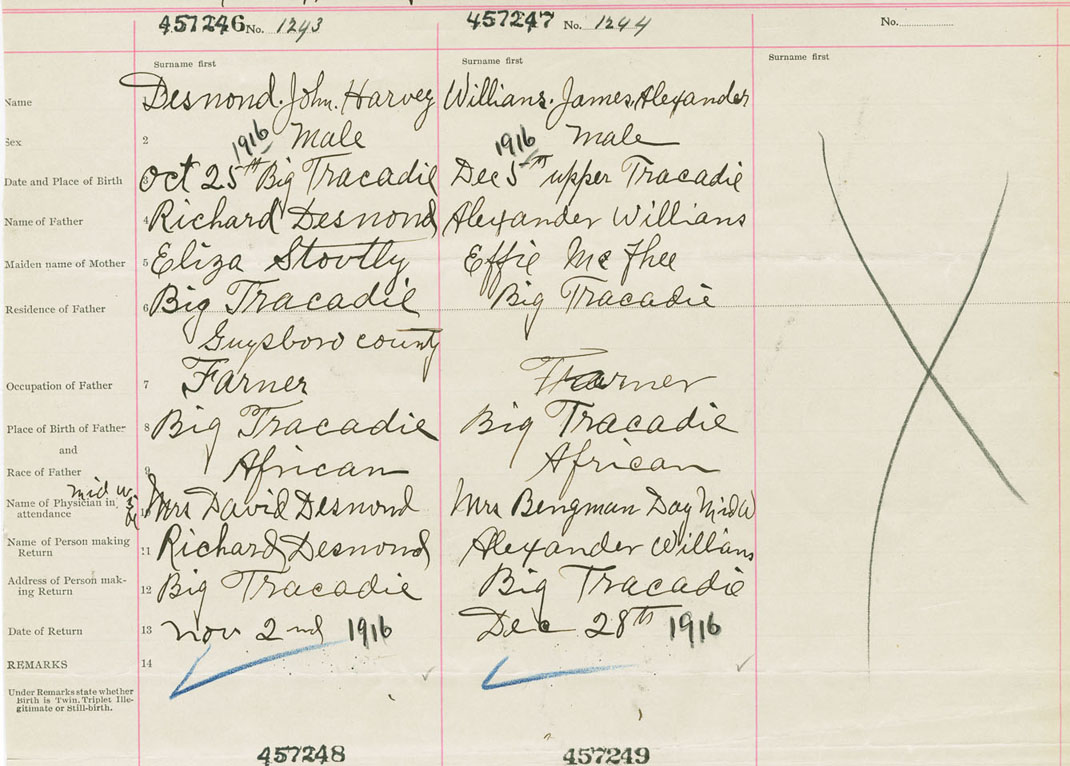 457246 No. 1243 457247 No. 1244 No.
Surname first Surname first Surname first
Name Desmond. John. Harvey Willians. James. Alexander
Sex 2 Male Male
1916 1916
Date and Place of Birth 3 Oct 25th Big Tracadie Dec 5th upper Tracadie
Name of Father 4 Richard Desmond Alexander Willians
Maiden name of Mother 5 Eliza Stovtly Effie Mc Fhee
Residence of Father 6 Big Tracadie Big Tracadie
Guysboro county
Occupation of Father 7 Farner Farner
Place of Birth of Father 8 Big Tracadie Big Tracadie
and
Race of Father 9 African African
mid wife
Name of Physician in attendance 10 Mrs David Desmond Mrs Bengman Day Mid W
Name of Person making Return 11 Richard Desmond Alexander Willians
Address of Person mak-ing Return 12 Big Tracadie Big Tracadie
Date of Return 13 Nov 2nd 1916 Dec 28th 1916
REMARKS 14
Under Remarks state whether
Birth is Twin, Triplet Ille-
gitimate or Still-birth.
457248 457249